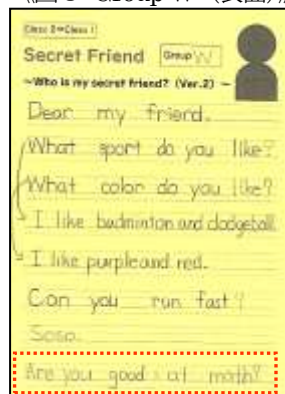 Class 2⇔Class 1
Secret Friend Group W
~Who is my secret friend? (Ver.2) ~
Dear my friend.
What sport do you like?
What color do you like?
I like badminton and dodgeball.
I like purple and red.
Can you run fast?
Soso.
Are you good at math?